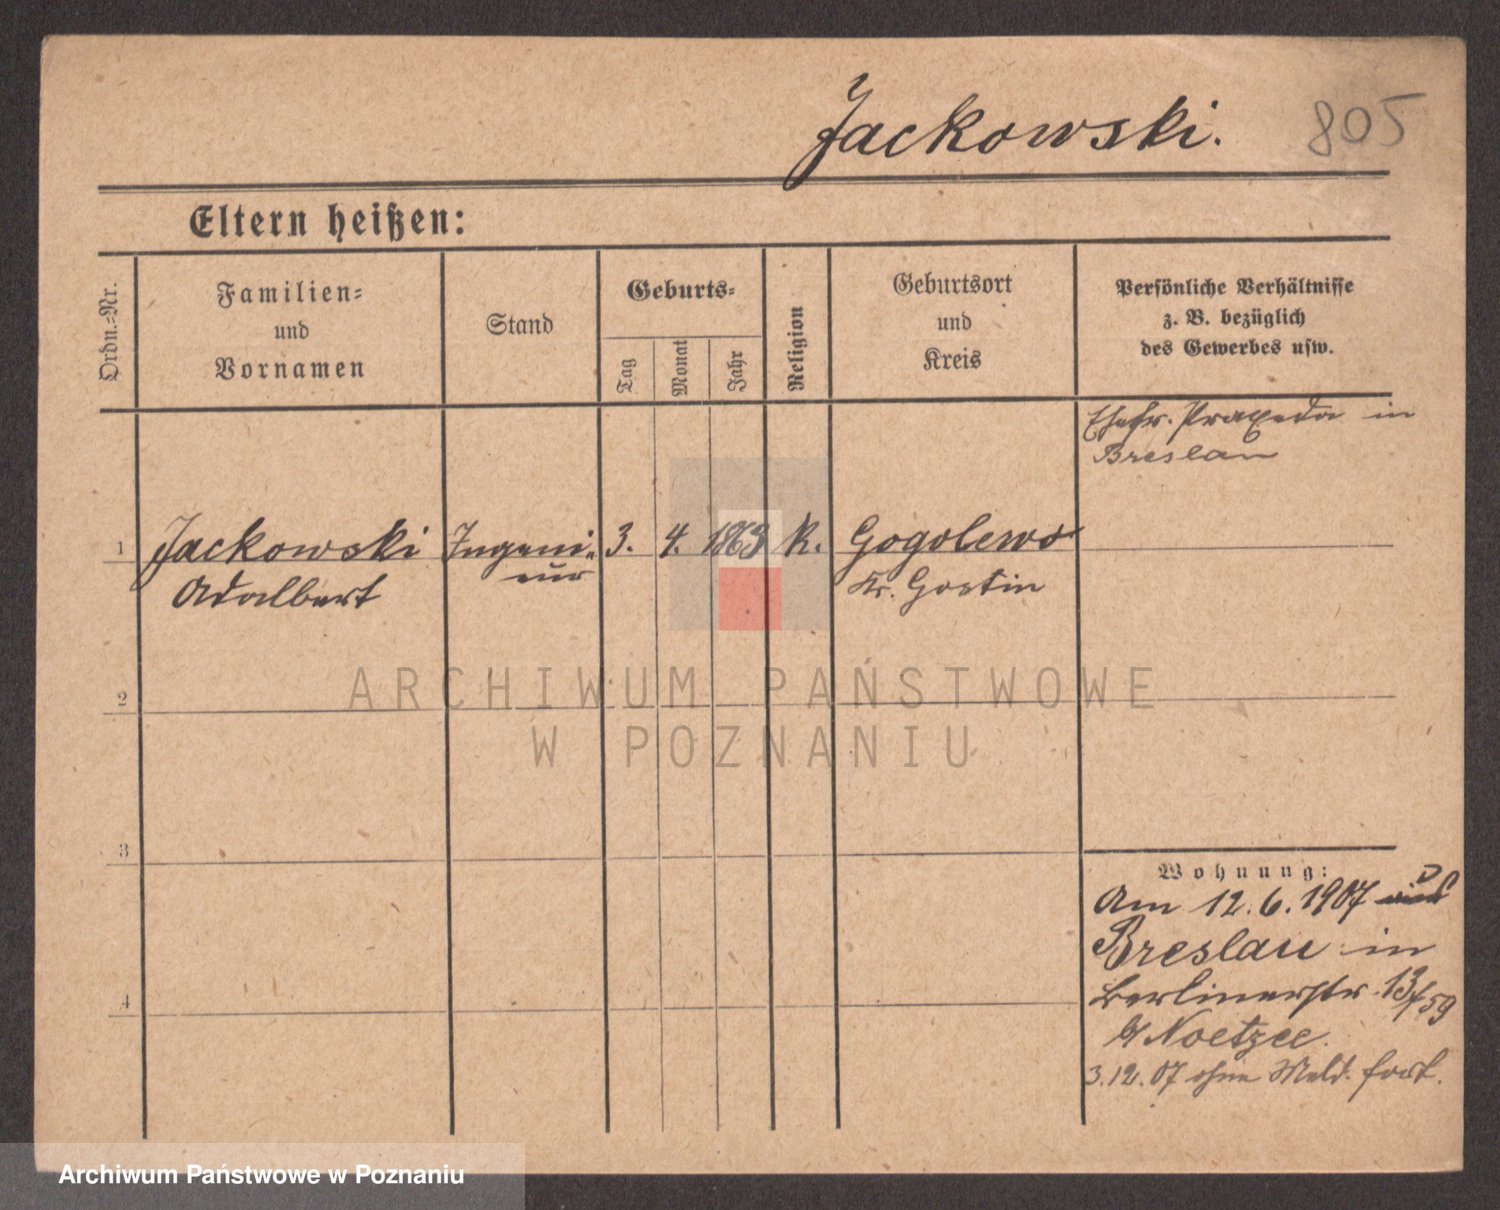 Jackowski. 805
Eltern heißen:
Ordn.-Nr.
Familien-
und
Vornamen
Stand
Geburts-
Tag
Monat
Jahr
Religion
Geburtsort
und
Kreis
Persönliche Verhältnisse
z. B. bezüglich
des Gewerbes usw.
Ehefr. Praxeda in
Breslau
1 Jackowski Ingeni- 3. 4. 1863 K. Gogolewo
Adalbert eur Kr. Gostin
ARCHIWUM PAŃSTWOWE
W POZNANIU
2
3
4
Wohnung:
Am 12.6.1907
Breslau in
Berlinerstr. 13/59
b/
3.12.07 ohne Meld. fort.
Archiwum Państwowe w Poznaniu